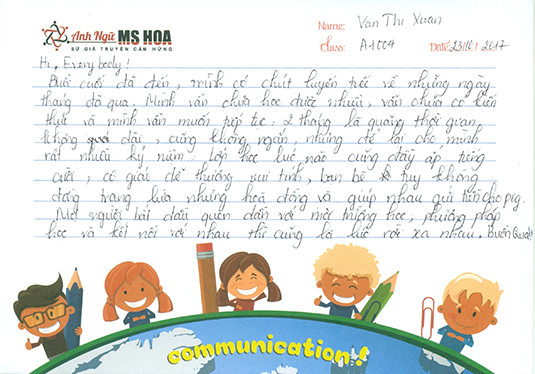 Anh Ngữ MS HOA
SỨ GIẢ TRUYỀN CẢM HỨNG
Name: Van Thi Xuan
Class: A1004 Date: 23/10/2017
Hi, Everybody!
Buổi cuối đã đến, mình có chút luyến tiếc về những ngày
tháng đã qua. Mình vẫn chưa học được nhiều, vẫn chưa có kiến
thức và mình vẫn muốn tiếp tục. 2 tháng là quãng thời gian
không dài, cũng không ngắn, nhưng để lại cho mình
rất nhiều kỷ niệm. Lớp học lúc nào cũng đầy ắp tiếng
cười, cô giáo dễ thương vui tính, bạn bè tuy không
đồng trang lứa nhưng hoà đồng và giúp nhau
Mọi người bắt đầu quen dần với môi trường học, phương pháp
học và kết nối với nhau thì cũng là lúc rời xa nhau. Buồn quá!
communication!